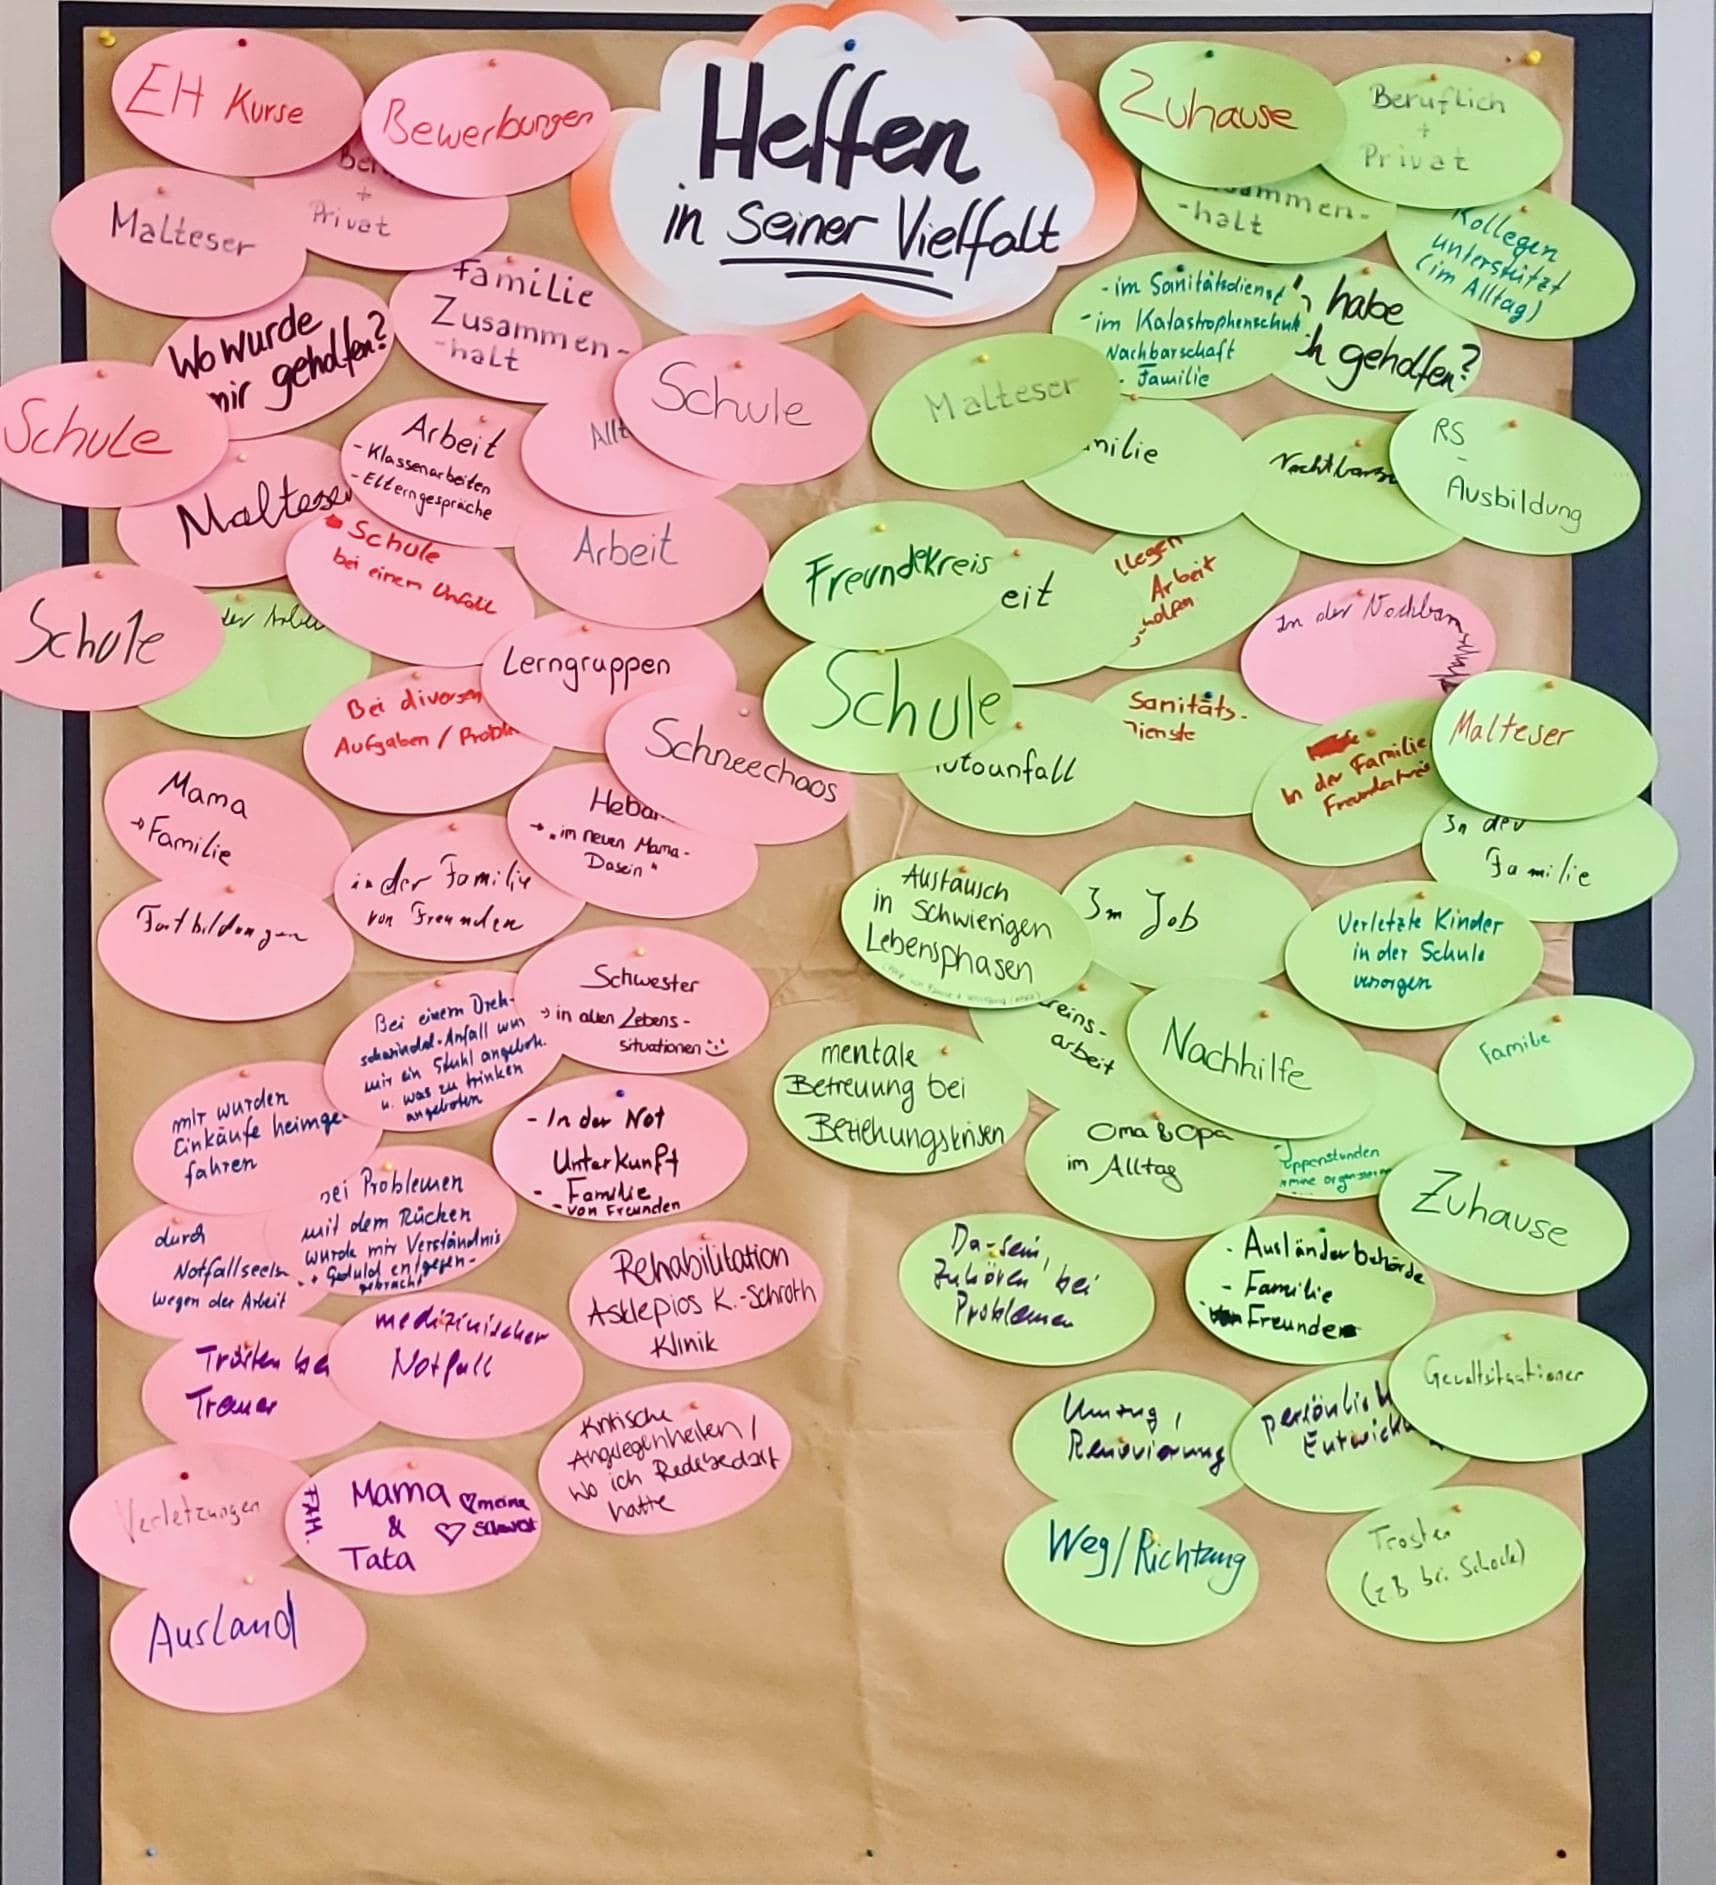 Helfen
in seiner Vielfalt
EH Kurse
Bewerbungen
Malteser
+
Privat
Wo wurde
mir geholfen?
Familie
Zusammen-
-halt
Schule
Schule
Malteser
Arbeit
- Klassenarbeiten
- Elterngespräche
Schule
bei einem Unfall
Arbeit
Schule
Lerngruppen
Bei diversen
Aufgaben /
Schneechaos
Mama
→ Familie
→ "im neuen Mama-
Dasein"
in der Familie
von Freunden
Fortbildungen
Schwester
→ in allen Lebens-
situationen
Bei einem Dreh-
schwindel-Anfall
mir ein Stuhl
u. was zu trinken
angeboten
mir wurden
Einkäufe heimge-
fahren
- In der Not
Unterkunft
- Familie
- von Freunden
bei Problemen
mit dem Rücken
wurde mir Verständnis
+ Geduld entgegen-
gebracht
durch
wegen der Arbeit
Rehabilitation
Asklepios K.-Schroth
Klinik
Trösten
Trauer
medizinischer
Notfall
Kritische
Angelegenheiten /
Wo ich Redebedarf
hatte
Verletzungen
FAM.
Mama
&
Tata
meine
Ausland
Zuhause
Beruflich
+
Privat
-halt
Kollegen
unterstützt
(im Alltag)
- im Sanitätsdienst
- im Katastrophenschutz
Nachbarschaft
- Familie
habe
geholfen?
Malteser
RS
-
Ausbildung
Freundekreis
Arbeit
In der
Schule
Sanitäts-
In der Familie
Malteser
In der
Familie
Austausch
in schwierigen
Lebensphasen
Im Job
Verletzte Kinder
in der Schule
versorgen
arbeit
Nachhilfe
Familie
mentale
Betreuung bei
Beziehungskrisen
Oma & Opa
im Alltag
Zuhause
Da-sein,
Zuhören bei
Problemen
- Ausländerbehörde
- Familie
Freunde
Gewaltsituationen
Umzug,
Renovierung
Weg/Richtung
Trösten
(z.B. bei Schock)